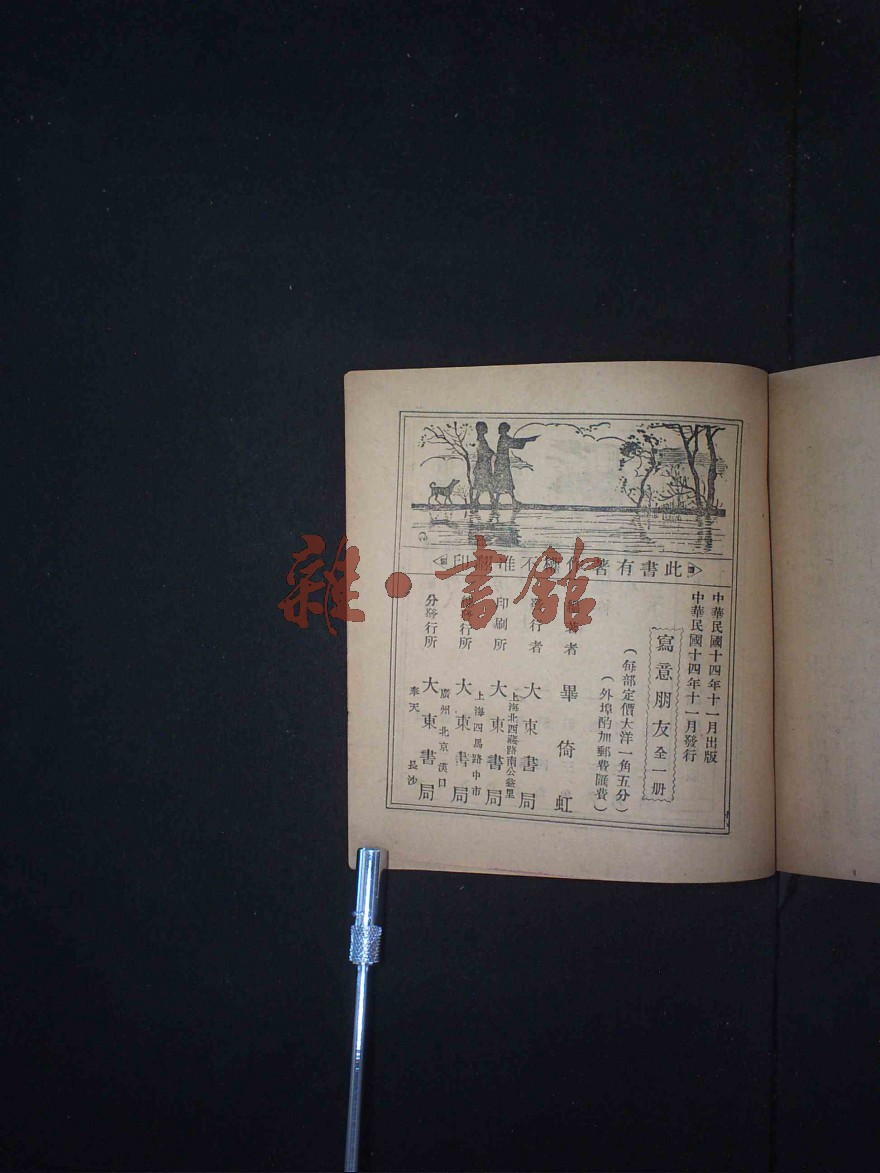 此書有著作權不准翻印
中華民國十四年十一月出版
中華民國十四年十一月發行
寫意朋友 全一册
(每部定價大洋一角五分)
(外埠酌加郵費匯費)
著者 畢倚虹
發行者 大東書局
上海北西藏路南公益里
印刷所 大東書局
上海四馬路中市
發行所 大東書局
廣州 北京 漢口
分發行所 大東書局
奉天 長沙
雜·書館